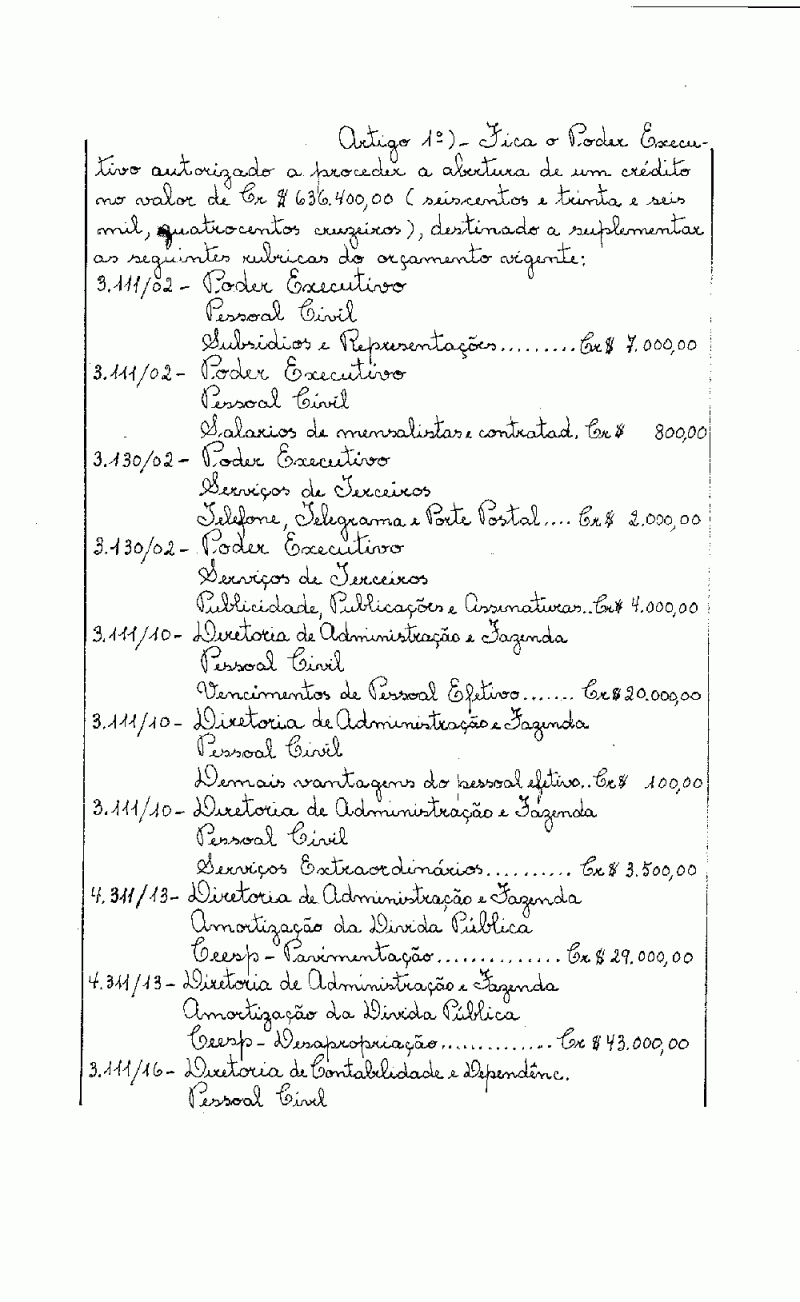 Artigo 1º) - Fica o Poder Execu-
tivo autorizado a proceder a abertura de um crédito
no valor de Cr $ 636.400,00 ( seiscentos e trinta e seis
mil, quatrocentos cruzeiros ), destinado a suplementar
as seguintes rubricas do orçamento vigente:
3.111/02 - Poder Executivo
Pessoal Civil
Subsidios e Representações......... Cr $ 7.000,00
3.111/02 - Poder Executivo
Pessoal Civil
Salarios de mensalistas e contratad. Cr $ 800,00
3.130/02 - Poder Executivo
Serviços de Terceiros
Telefone, Telegrama e Porte Postal.... Cr $ 2.000,00
3.130/02 - Poder Executivo
Serviços de Terceiros
Publicidade, Publicações e Assinaturas.. Cr $ 4.000,00
3.111/10 - Diretoria de Administração e Fazenda
Pessoal Civil
Vencimentos de Pessoal Efetivo....... Cr $ 20.000,00
3.111/10 - Diretoria de Administração e Fazenda
Pessoal Civil
Demais vantagens do pessoal efetivo.. Cr $ 100,00
3.111/10 - Diretoria de Administração e Fazenda
Pessoal Civil
Serviços Extraordinários.......... Cr $ 3.500,00
4.311/13 - Diretoria de Administração e Fazenda
Amortização da Divida Pública
Ceesp - Pavimentação.............. Cr $ 29.000,00
4.311/13 - Diretoria de Administração e Fazenda
Amortização da Divida Pública
Ceesp - Desapropriação.............. Cr $ 43.000,00
3.111/16 - Diretoria de Contabilidade e Dependênc.
Pessoal Civil